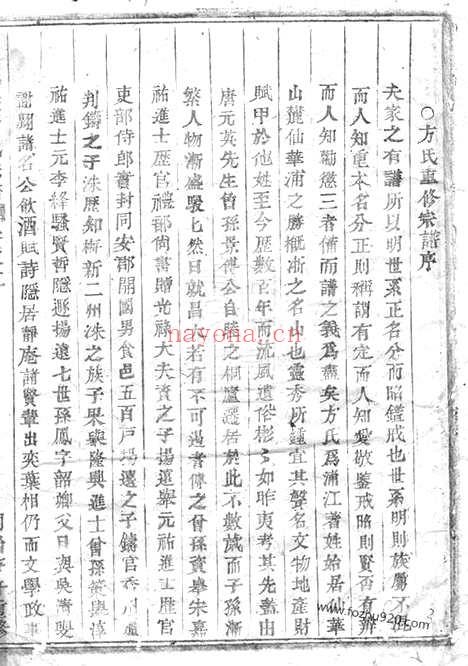 ○方氏重修宗譜序
夫家之有譜所以明世系正名分而昭鑑戒也世系明則族屬不
而人知重本名分正則稱謂有定而人知愛敬鑒戒昭則賢否有辨
而人知勸懲三者備而譜之義爲盡矣方氏爲浦江著姓始居仙華
山麓仙華浦之勝概浙之名山也靈秀所鍾宜其聲名文物地產財
賦甲於他姓至今歷數百年而流風遺俗彬彬如昨夷考其先蓋由
唐元英先生曾孫景傳公自睦之桐廬遷居於此不數歲而子孫漸
繁人物漸盛駸七然日就昌若有不可遏者傳之曾孫資舉朱嘉
祐進士歷官禮部尚書贈光祿大夫資之子揚遠舉元祐進士歷官
吏部侍郎實封同安郡開國男食邑五百戶揚遠之子鑄官
判鑄之子洙歷知衛新二州洙之族子果與隆興進士曾孫策與淳
祐進士元季絳騷賢哲隱遯揚遠七世孫鳳字韶卿父日與吳
謝翱諸名公飲酒賦詩隱居靜庵諸賢輩出奕葉相仍而文學政事
nayona.cn
www.fozhu920.com